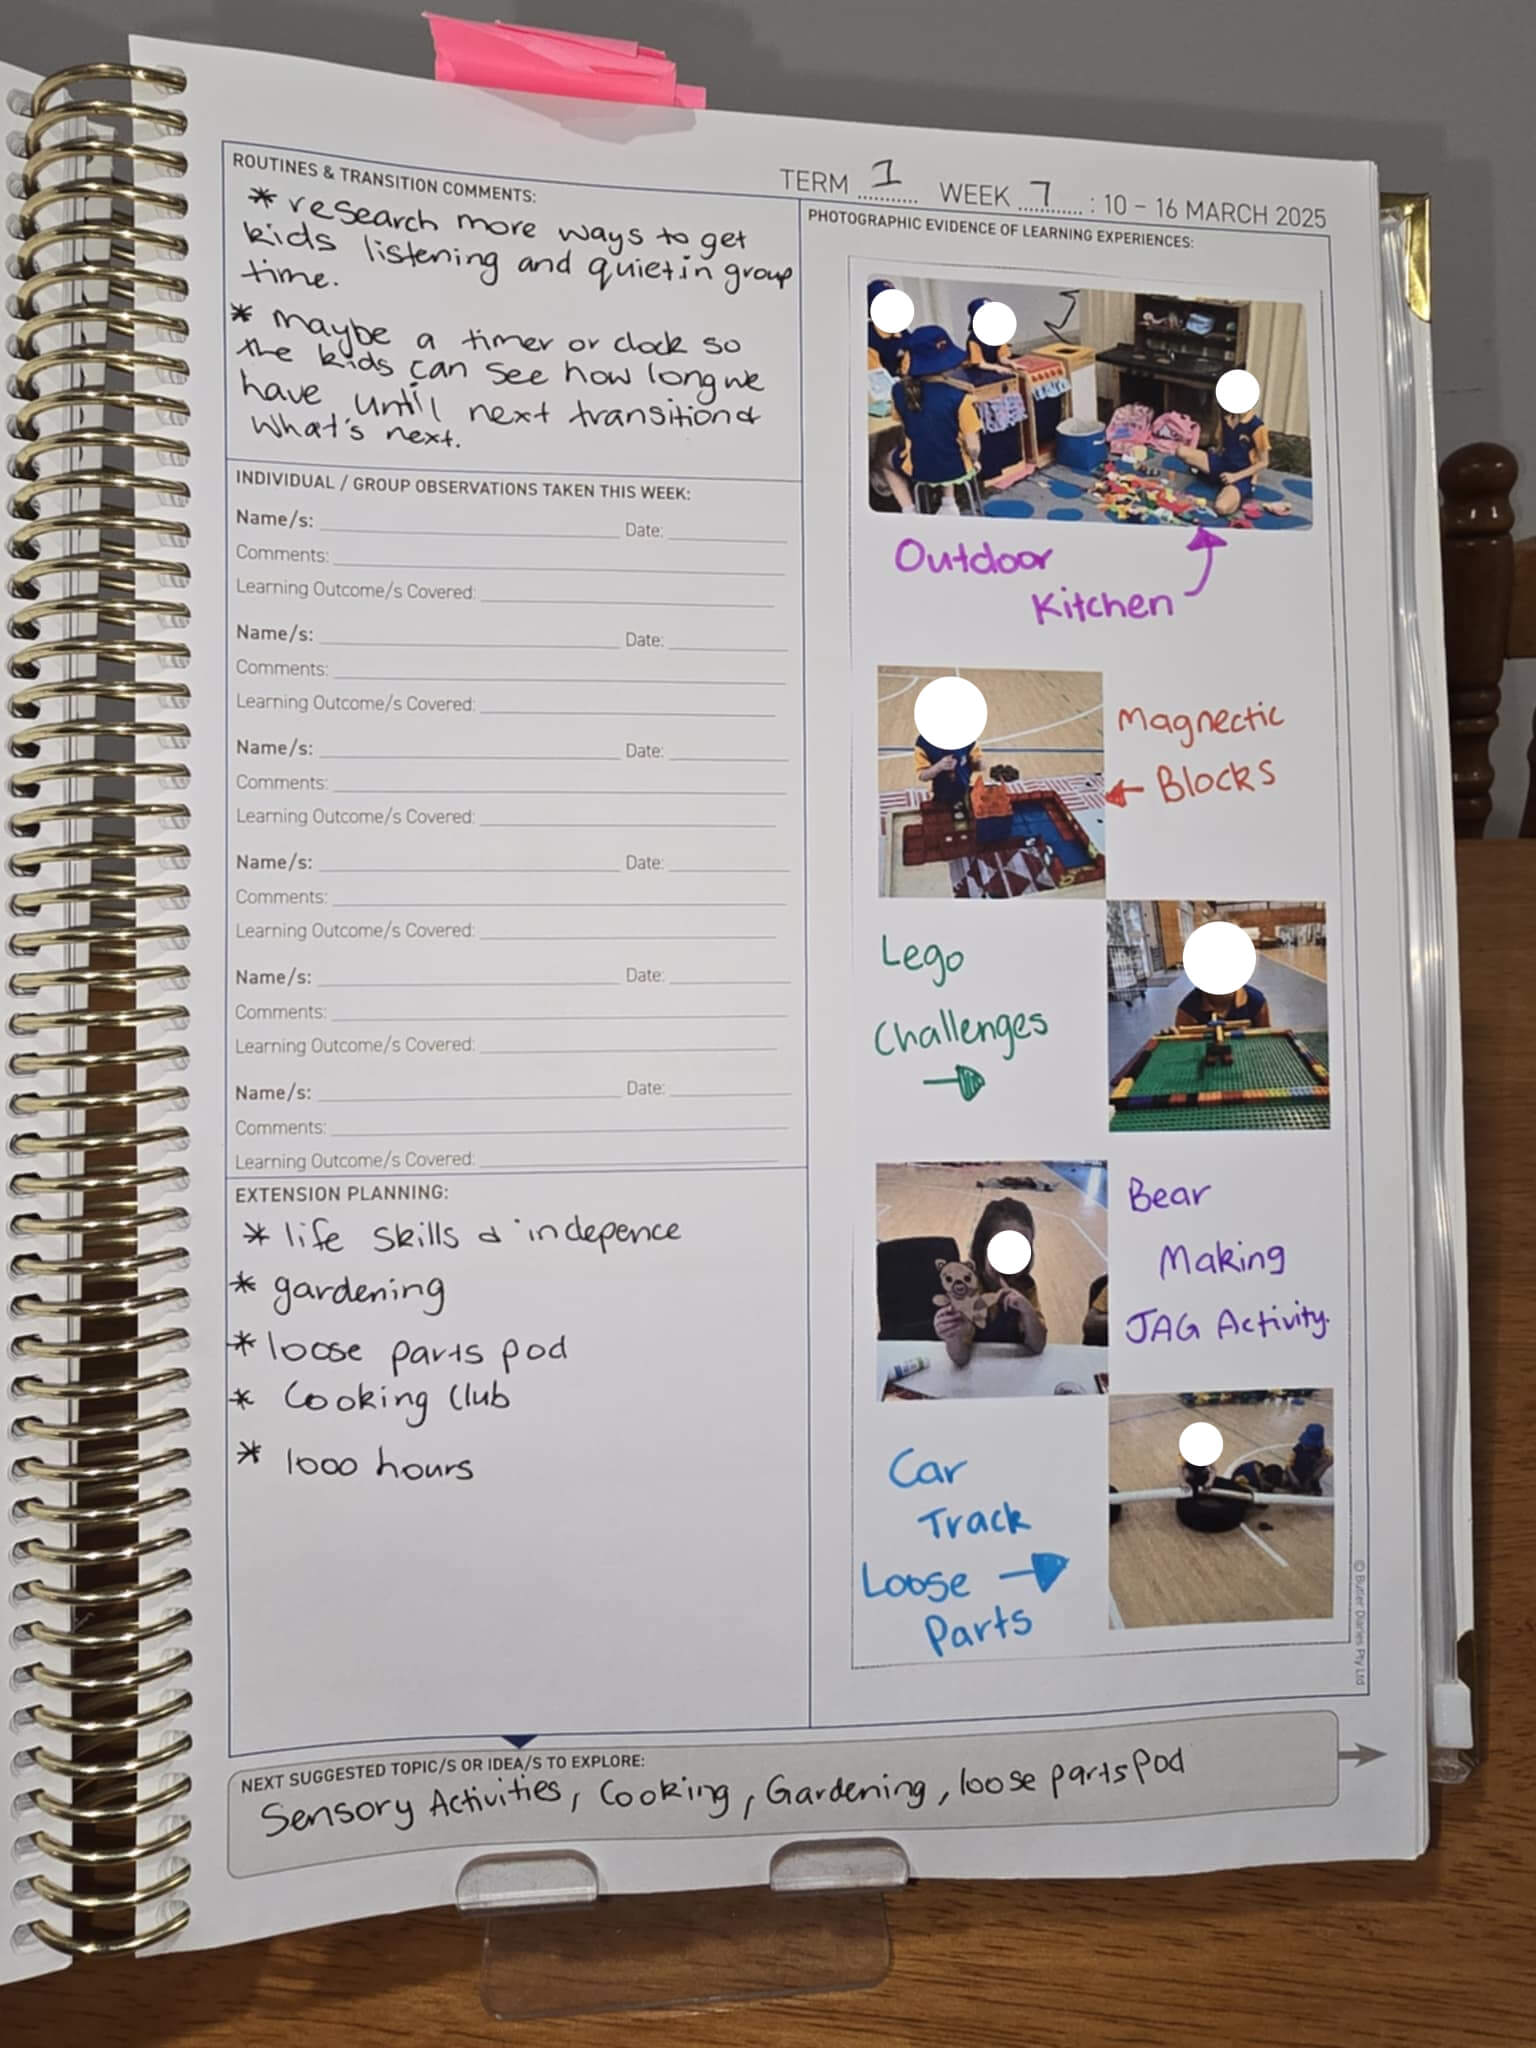 TERM 1 WEEK 7 : 10 – 16 MARCH 2025
ROUTINES & TRANSITION COMMENTS:
* research more ways to get
kids listening and quiet in group
time.
* maybe a timer or clock so
the kids can see how long we
have until next transition &
What's next.
INDIVIDUAL / GROUP OBSERVATIONS TAKEN THIS WEEK:
Name/s: Date:
Comments:
Learning Outcome/s Covered:
Name/s: Date:
Comments:
Learning Outcome/s Covered:
Name/s: Date:
Comments:
Learning Outcome/s Covered:
Name/s: Date:
Comments:
Learning Outcome/s Covered:
Name/s: Date:
Comments:
Learning Outcome/s Covered:
Name/s: Date:
Comments:
Learning Outcome/s Covered:
EXTENSION PLANNING:
* life skills & indepence
* gardening
* loose parts pod
* Cooking Club
* 1000 hours
PHOTOGRAPHIC EVIDENCE OF LEARNING EXPERIENCES:
Outdoor
Kitchen
Magnectic
Blocks
Lego
Challenges
Bear
Making
JAG Activity.
Car
Track
Loose
Parts
© Butler Diaries Pty Ltd
NEXT SUGGESTED TOPIC/S OR IDEA/S TO EXPLORE:
Sensory Activities, Cooking, Gardening, loose parts pod